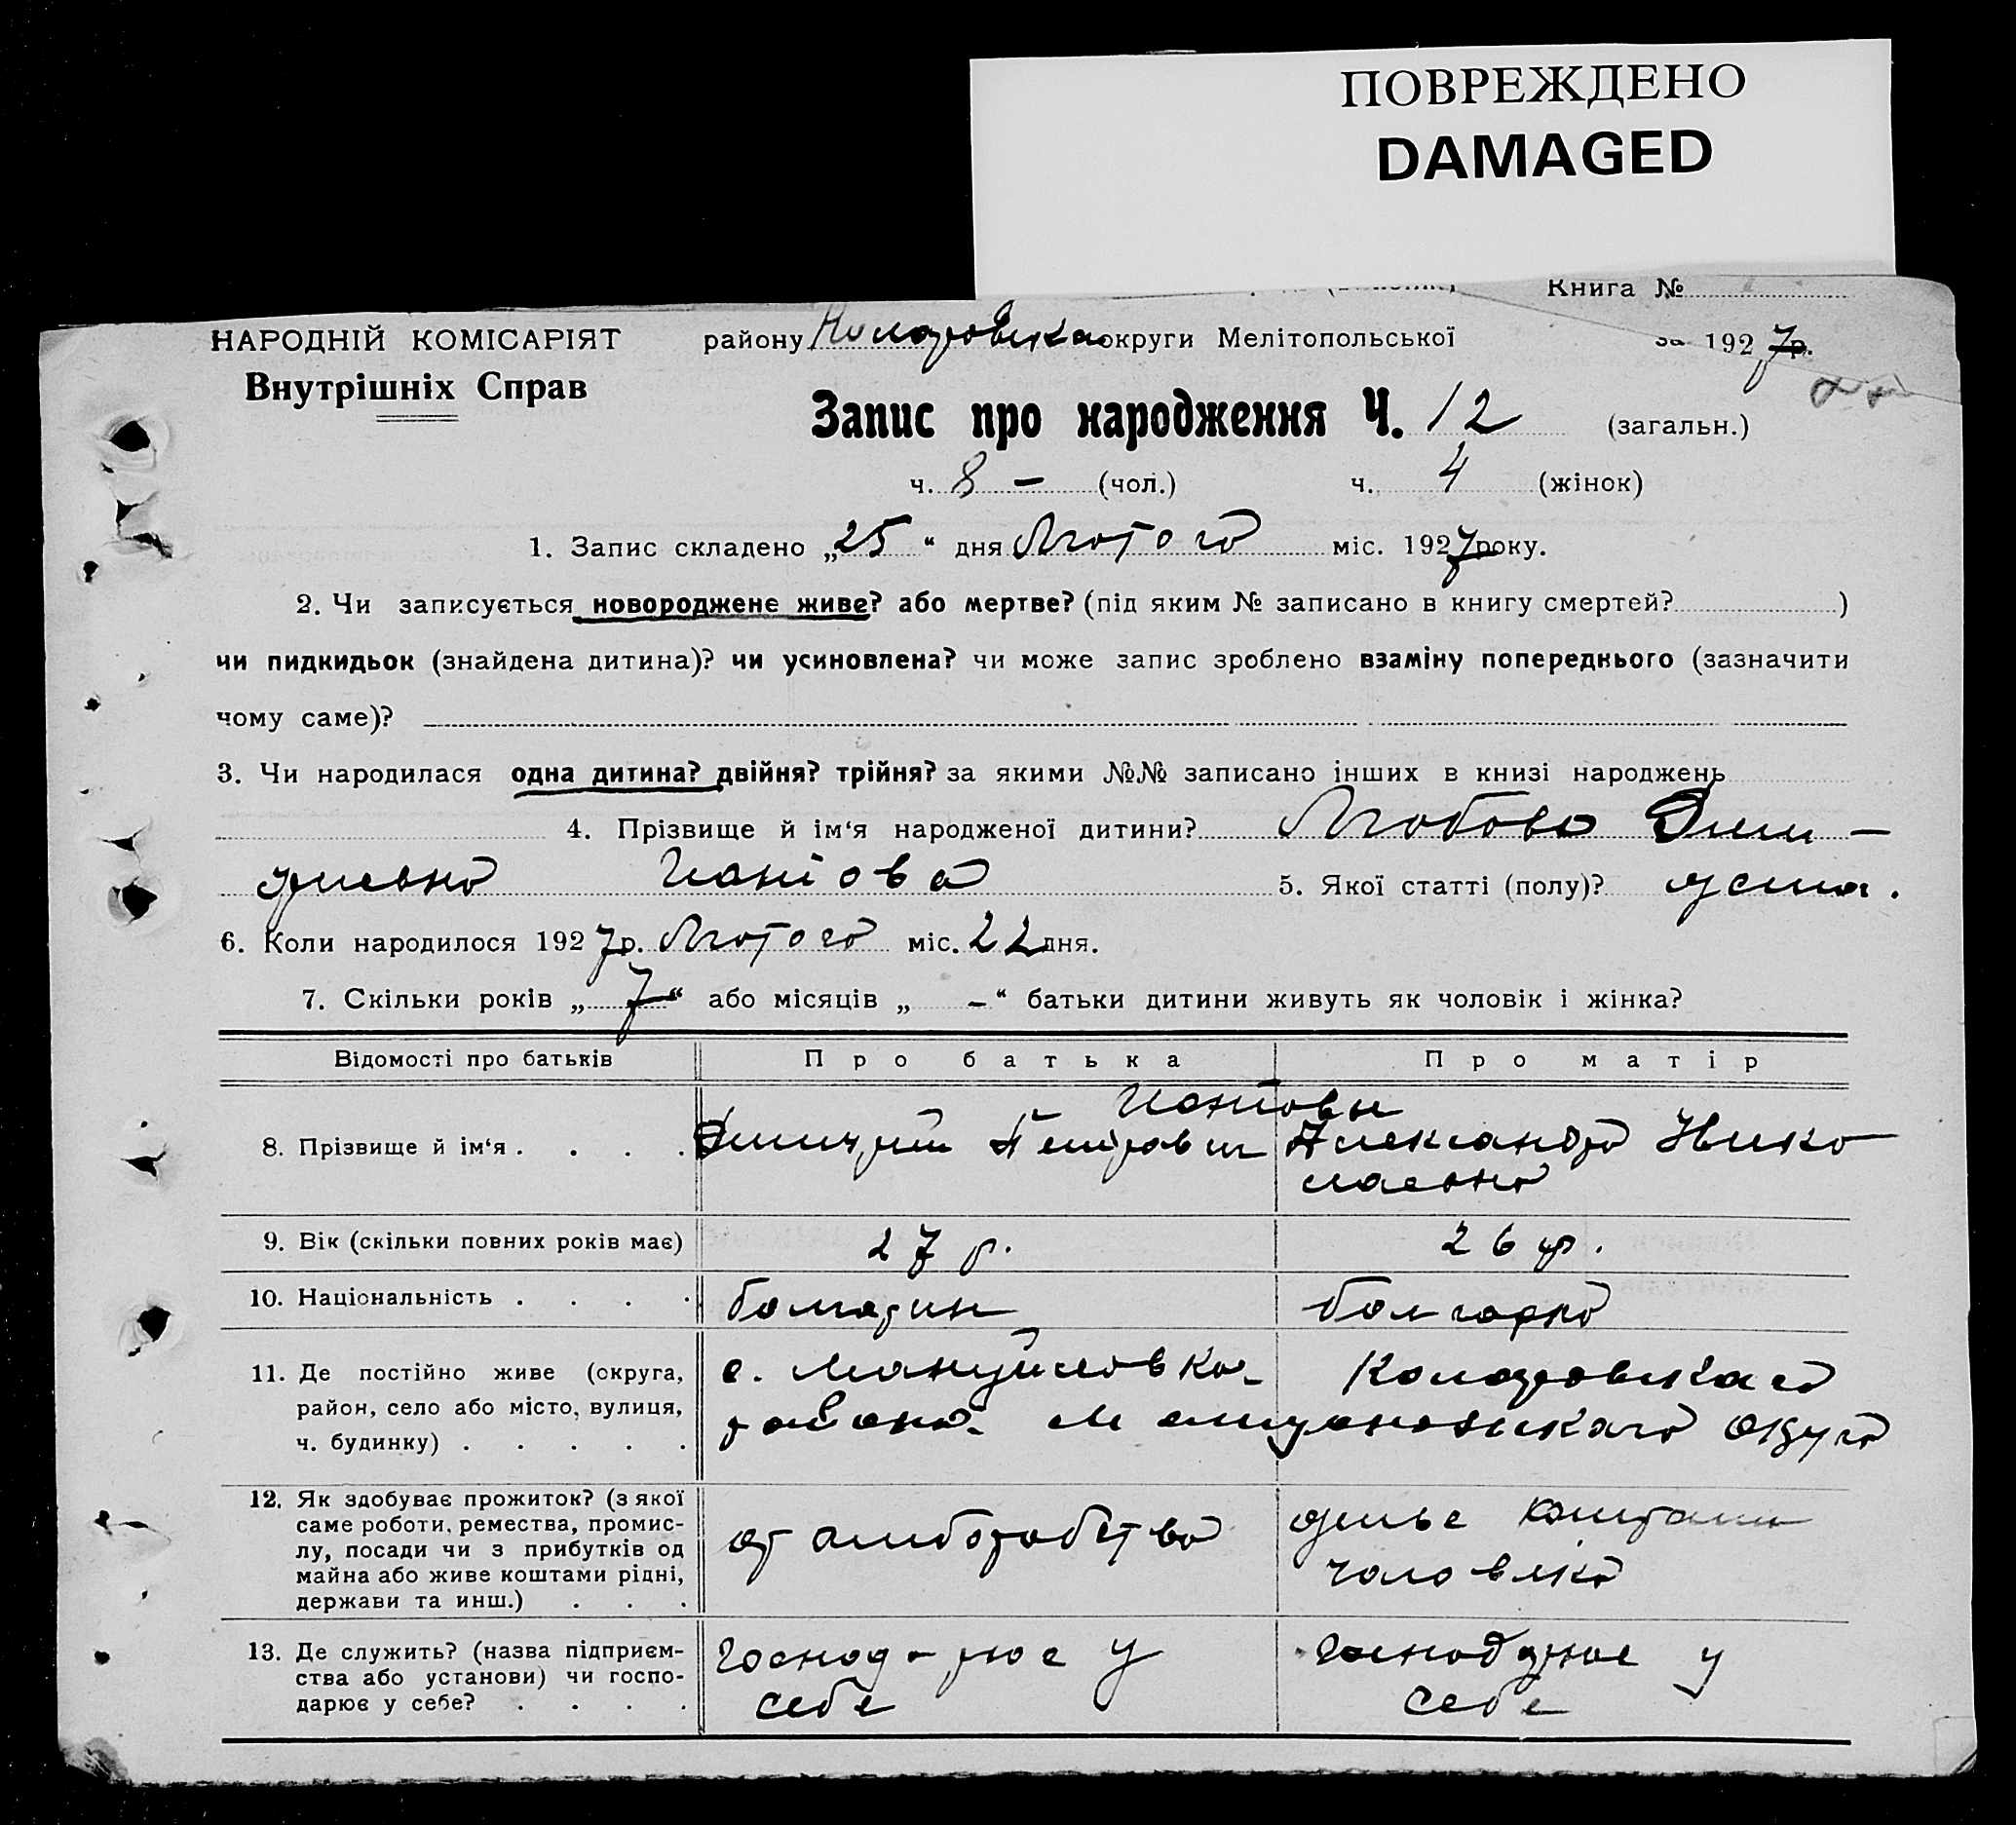 ПОВРЕЖДЕНО
DAMAGED
Книга №
НАРОДНІЙ КОМІСАРІЯТ
Внутрішніх Справ
району округи Мелітопольської
за 1927р.
Запис про народження Ч. 12 (загальн.)
ч. 8 – (чол.) ч. 4 (жінок)
1. Запис складено „25“ дня Лютого міс. 1927 року.
2. Чи записується новороджене живе? або мертве? (під яким № записано в книгу смертей? )
чи пидкидьок (знайдена дитина)? чи усиновлена? чи може запис зроблено взаміну попереднього (зазначити
чому саме)?
3. Чи народилася одна дитина? двійня? трійня? за якими №№ записано інших в книзі народжень
4. Прізвище й ім‘я народженої дитини? Любовь Дми–
триевна 5. Якої статті (полу)?
6. Коли народилося 1927р. Лютого міс. 22 дня.
7. Скільки років „7“ або місяців „–“ батьки дитини живуть як чоловік і жінка?
Відомості про батьків Про батька Про матір
8. Прізвище й ім‘я . . . . Дмитрий Петрович Александра Нико
лаевна
9. Вік (скільки повних років має) 27 р. 26 р.
10. Національність . . . . болгарин болгарка
11. Де постійно живе (округа, с. Мануйловка
район, село або місто, вулиця, района Мелитопольскаго округа
ч. будинку) . . . . .
12. Як здобуває прожиток? (з якої
саме роботи, ремества, промис-
лу, посади чи з прибутків од
майна або живе коштами рідні,
держави та инш.) . . .
от хлиборобства
коштами
чоловіка
13. Де служить? (назва підприєм-
ства або установи) чи госпо-
дарює у себе? . . . .
господарює у
себе
господарює у
себе